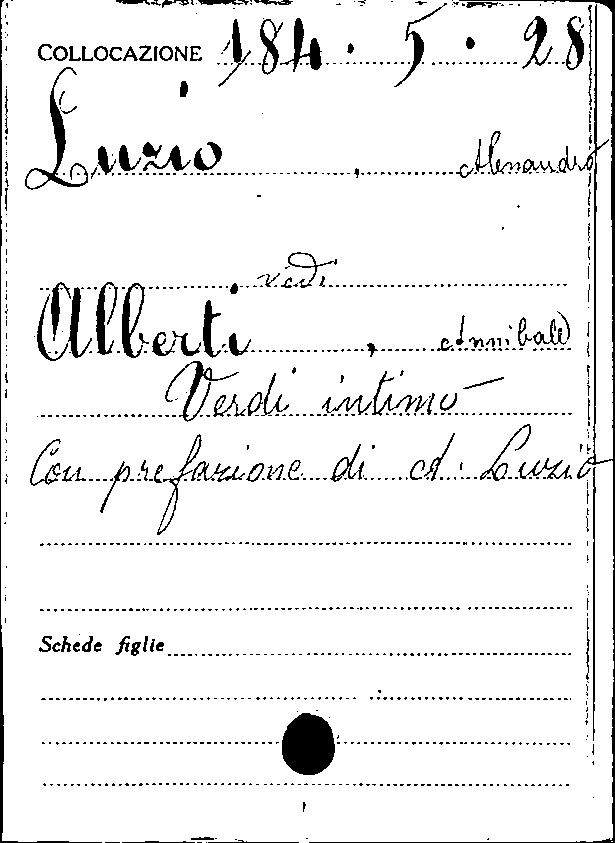 COLLOCAZIONE 184. 5. 28
Luzio, Alessandro
vedi
Alberti, Annibale
Verdi intimo
Con prefazione di A. Luzio
Schede figlie